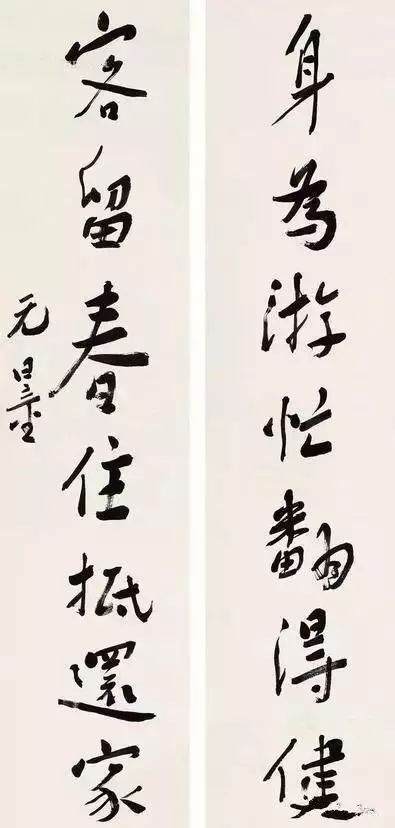 身為游忙翻得健
客留春住抵還家
无量